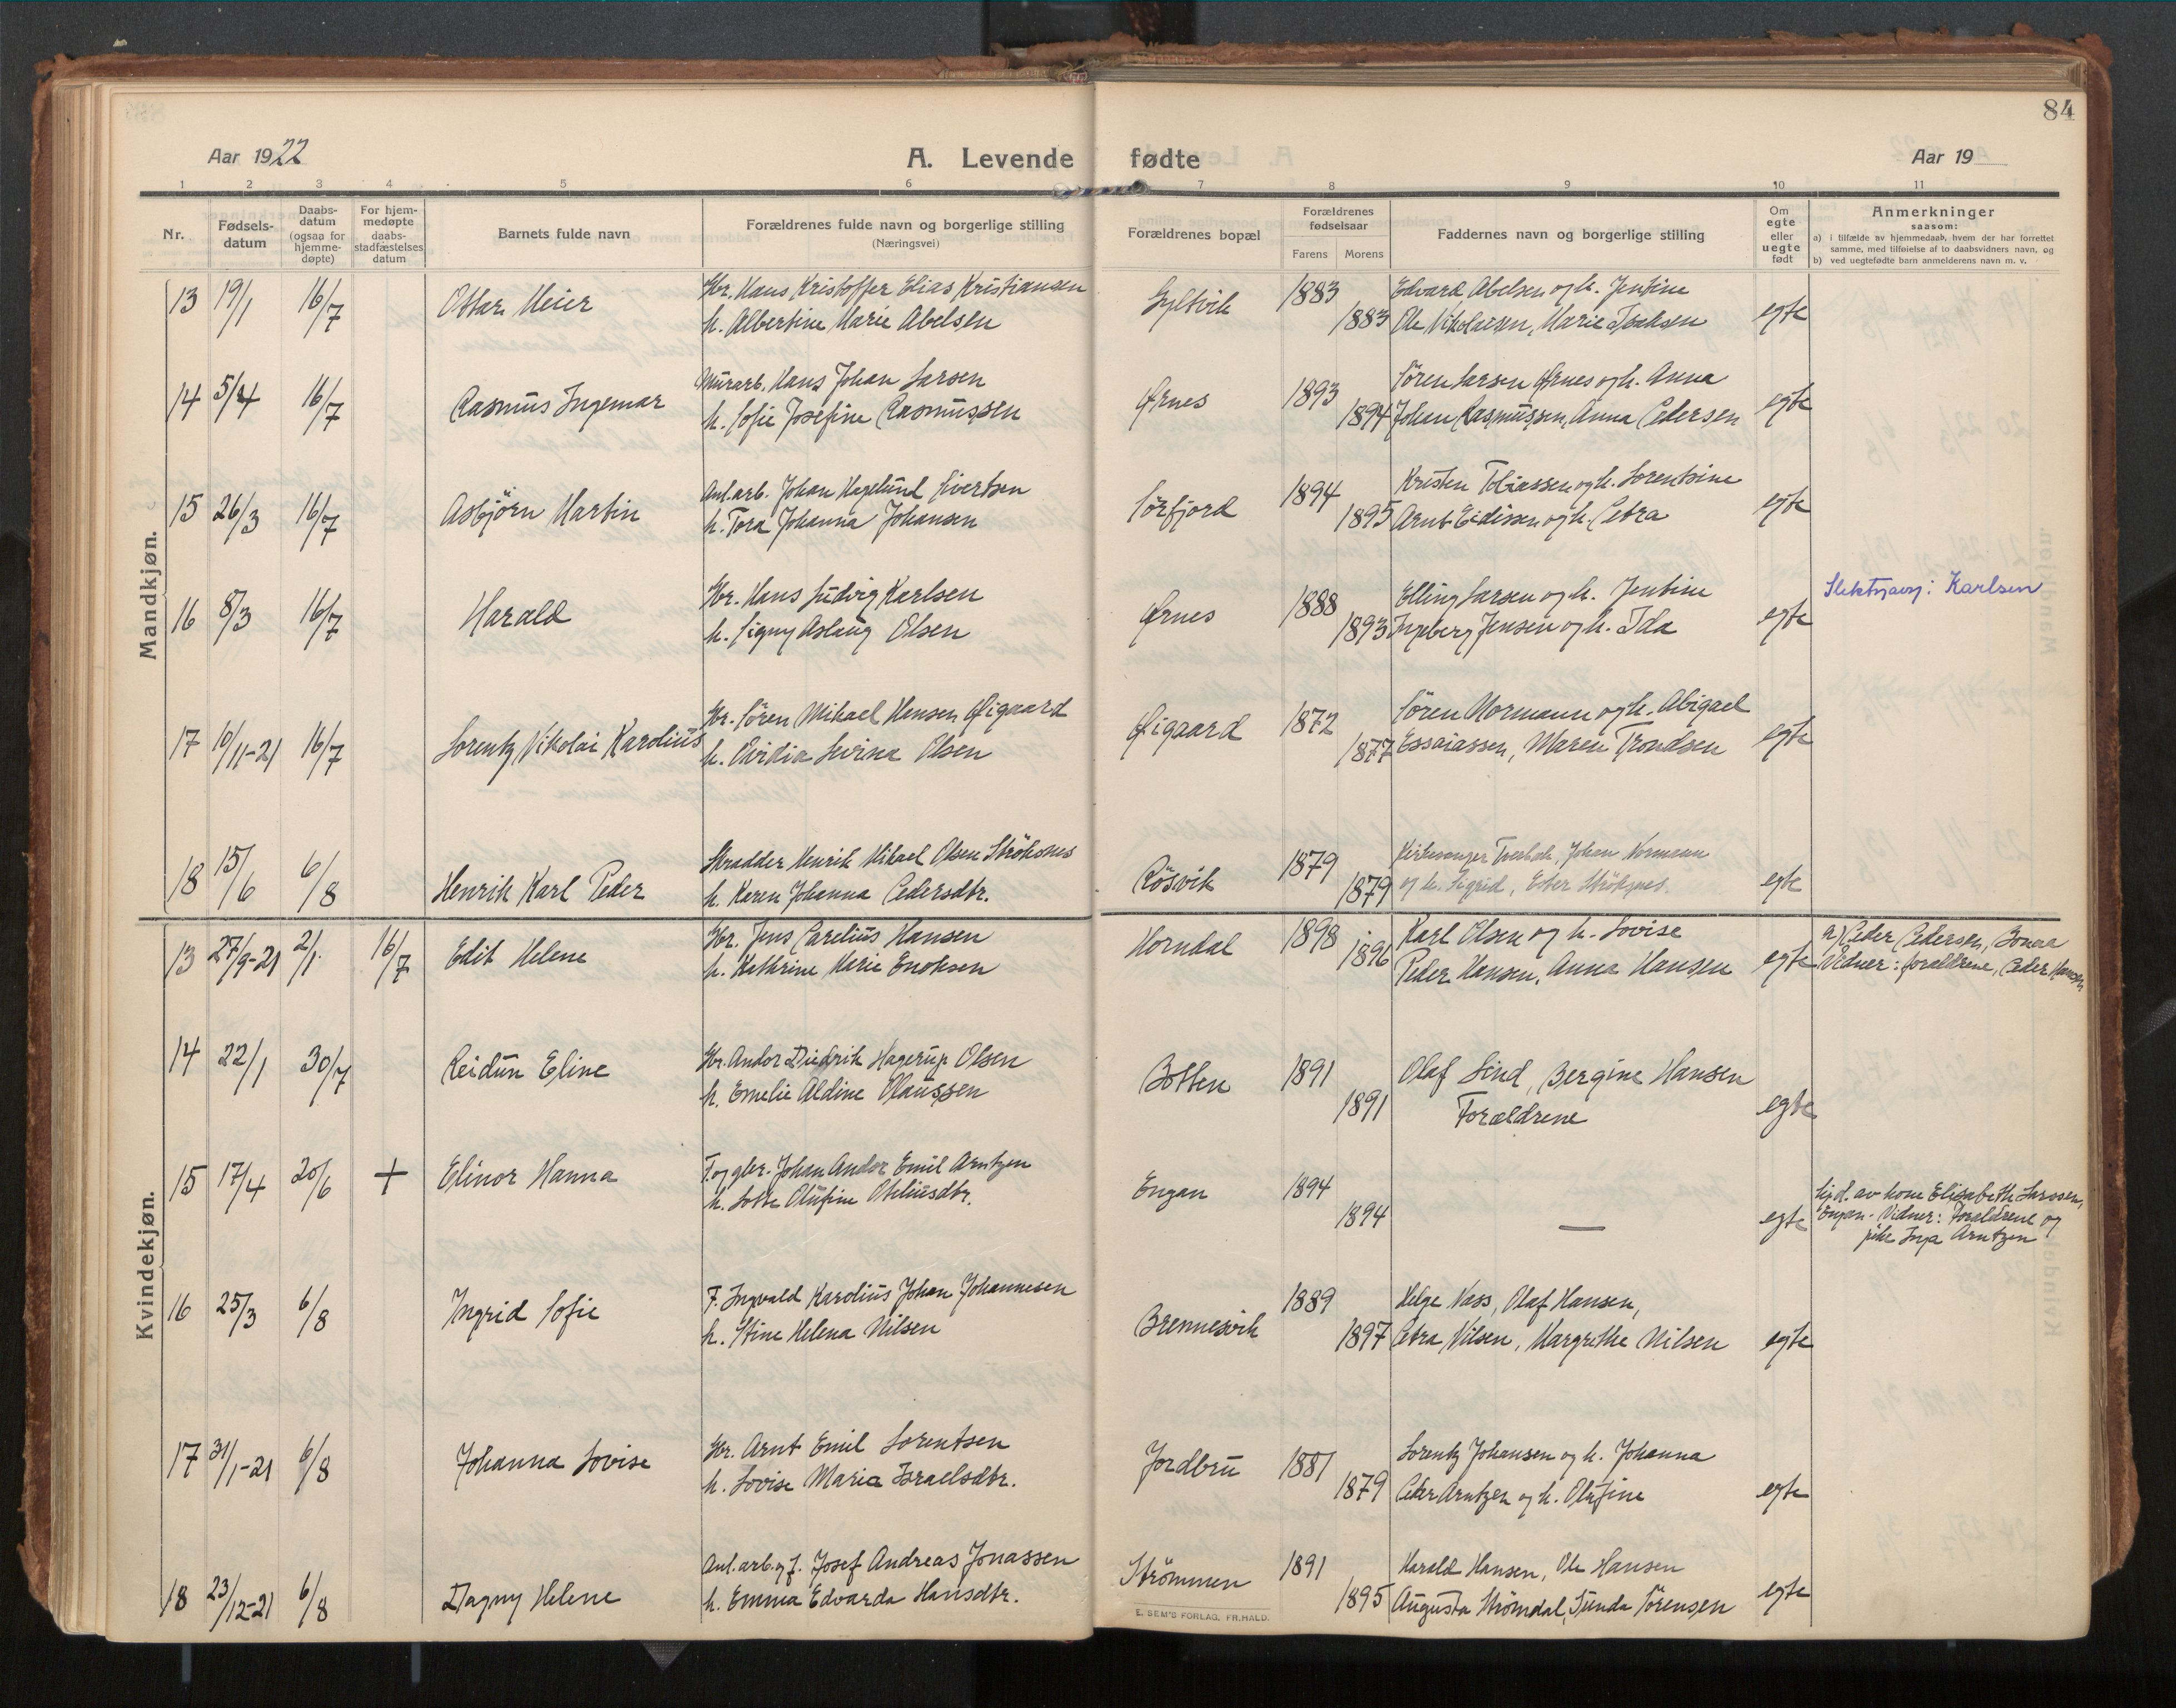 84
Aar 1922
A. Levende fødte
Aar 19
1 2 3 4 5 6 7 8 9 10 11
Nr.
Fødsels-
datum
Daabs-
datum
(ogsaa for
hjemme-
døpte)
For hjem-
medøpte
daabs-
stadfæstelses
datum
Barnets fulde navn
Forældrenes fulde navn og borgerlige stilling
(Næringsvei)
Forældrenes bopæl
Forældrenes
fødselsaar
Farens Morens
Faddernes navn og borgerlige stilling
Om
egte
eller
uegte
født
Anmerkninger
saasom:
a) i tilfælde av hjemmedaab, hvem der har forrettet
samme, med tilføielse af to daabsvidners navn, og
b) ved uegtefødte barn anmelderens navn m. v.
Mandkjøn.
13 19/1 16/7 Ottar Meier
Gbr. Hans Kristoffer Elias Kristiansen
h. Albertine Marie Abelsen
Syltvik 1883 1883
Edvard Abelsen og h. Jentine
Ole Nikolaisen, Marie Isaksen
egte
14 5/4 16/7 Rasmus Ingemar
Murarb. Hans Johan Larsen
h. Sofie Josefine Rasmussen
Ørnes 1893 1894
Søren Larsen Ørnes og h. Anna
Johan Rasmussen, Anna Pedersen
egte
15 26/3 16/7 Asbjörn Martin
Anl.arb. Johan Hagelund Sivertsen
h. Tora Johanna Johansen
Sörfjord 1894 1895
Kristen Tobiassen og h. Lorentsine
Arnt Eidissen og h. Petra
egte
16 8/3 16/7 Harald
Gbr. Hans Ludvig Karlsen
h. Signy Aslaug Olsen
Ørnes 1888 1893
Elling Larsen og h. Jentine
Ingeberg Jensen og h. Ida
egte
Slektsnavn: Karlsen
17 10/11-21 16/7 Lorentz Nikolai Karolius
Gbr. Sören Mikael Hansen Øigaard
h. Ovidia Lovisa Olsen
Øigaard 1872 1877
Sören Normann og h. Abigael
Essaiassen, Maren Trondsen
egte
18 15/6 6/8 Henrik Karl Peder
Skradder Henrik Mikael Olsen Ströksnes
h. Karen Johanna Pedersdtr.
Rösvik 1879 1879
Kirkesanger Tverbak, Johan Normann
og h. Sigrid, Ester Ströksnes.
egte
Kvindekjøn.
13 27/9-21 2/1 16/7 Edit Helene
Gbr. Jens Parelius Hansen
h. Kathrine Marie Enoksen
Horndal 1898 1896
Karl Olsen og h. Lovise
Peder Hansen, Anna Hansen
egte
a) Peder Pedersen, Bonaa
Vidner: foraldrene, Peder Hansen
14 22/1 30/7 Reidun Eline
Gbr. Andor Diedrik Hagerup Olsen
h. Emelie Aldine Olaussen
Botten 1891 1891
Olaf Lind, Bergine Hansen
Forældrene
egte
15 17/4 20/6 + Elinor Hanna
F. og gbr. Johan Andor Emil Arntzen
h. Lotte Olufine Oteliusdtr.
Engan 1894 1894
—
egte
Hj.d. av kone Elisabeth Larssen,
Engan. Vidner: Foraldrene og
pike Inga Arntzen
16 25/3 6/8 Ingrid Sofie
F. Ingvald Karolius Johan Johannesen
h. Stine Helena Nilsen
Brennesvik 1889 1897
Helge Vass, Olaf Hansen,
Petra Nilsen, Margrethe Nilsen
egte
17 31/1-21 6/8 Johanna Lovise
Gbr. Arnt Emil Lorentsen
h. Lovise Maria Israelsdtr.
Jordbru 1881 1879
Lorentz Johansen og h. Johanna
Peder Arntzen og h. Olufine
egte
18 23/12-21 6/8 Dagny Helene
Anl.arb. og f. Josef Andreas Jonassen
h. Emma Edvarda Hansdtr.
Strömmen 1891 1895
Harald Hansen, Ole Hansen
Augusta Strömdal, Tunda Sörensen
egte
E. SEM'S FORLAG, FR.HALD.